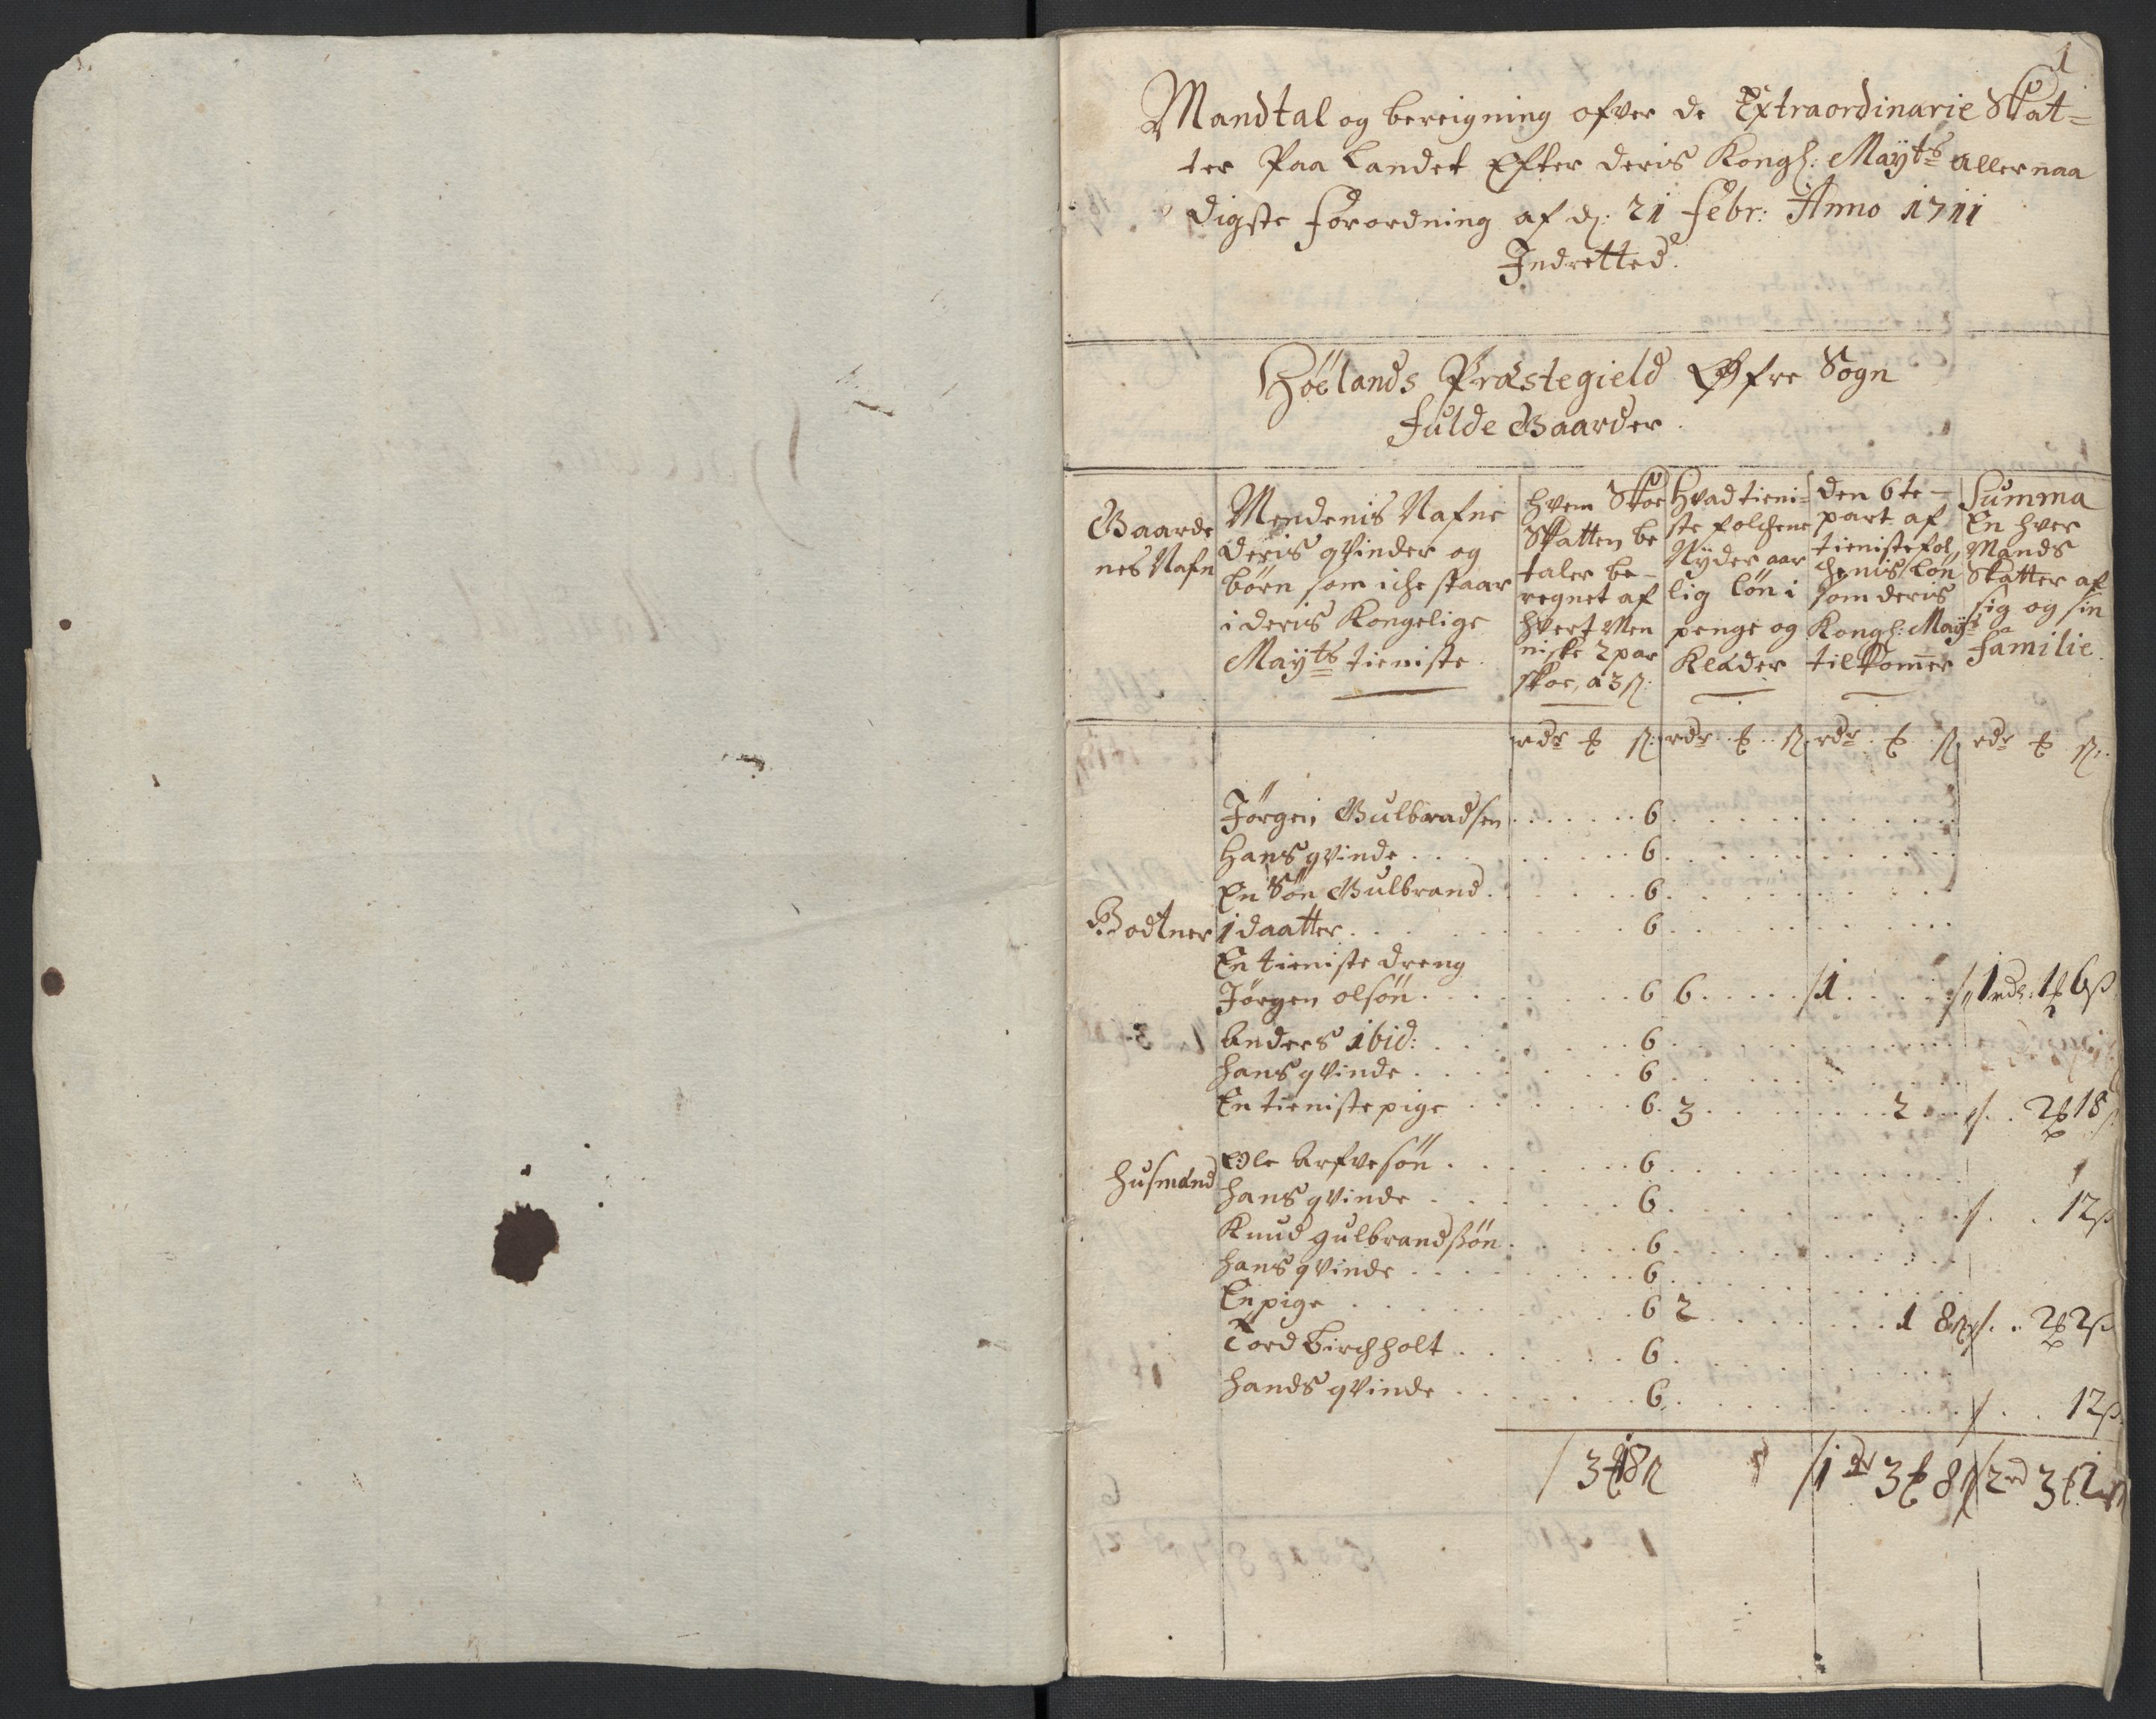 1
Mandtal og bereigning ofver de Extraordinarie Skat=
ter Paa Landet Efter deris Kongl: Mayts allernaa
digste forordning af d: 21 febr: Anno 1711
Indretted.
Höelands Præstegield Öfre Sogn
Fulde Gaarder.
Gaarde
nes Nafn
Mendenis Nafne
deris qvinder og
börn som iche staar
i deris Kongelige
Mayts tieniste.
hvem Skoe
Skatten be
taler be-
regnet af
hvert Men
niske 2 par
skoe, a 3 ß:
Hvad tieni=
ste folchene
Nyder aar
lig lön i
penge og
Klæder
den 6te-
part af
tienistefol,
chenis lön
som deris
Kongl: Mayts
tilkomer
Summa
En hver
Mands
Skatter af
sig og sin
familie.
rdr ß rdr ß rdr ß rdr ß
Jörgen Gulbradsen 6
Hans qvinde 6
En Sön Gulbrand 6
Bodtner 1 daatter 6
En tieniste dreng
Jörgen olsön 6 6 1 1 rd: 1 6 ß
Anders ibid: 6
hans qvinde 6
En tieniste pige 6 3 2 2 18 ß
Husmænd Ole Arfvesön 6
hans qvinde 6 12 ß
Knud gulbrandsön 6
hans qvinde 6
En pige 6 2 1 8 2 2 ß
Tord Birchholt 6
hands qvinde 6 12 ß
3 18 ß 1 dr 3 8 ß 2 rd 3 2 ß